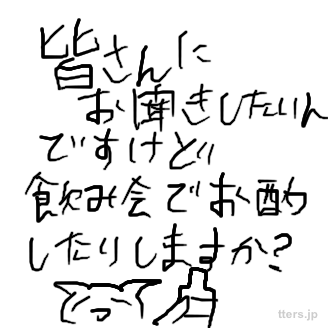 皆さんに
お聞きしたいん
ですけど
飲み会でお酌
したりしますか?
tters.jp